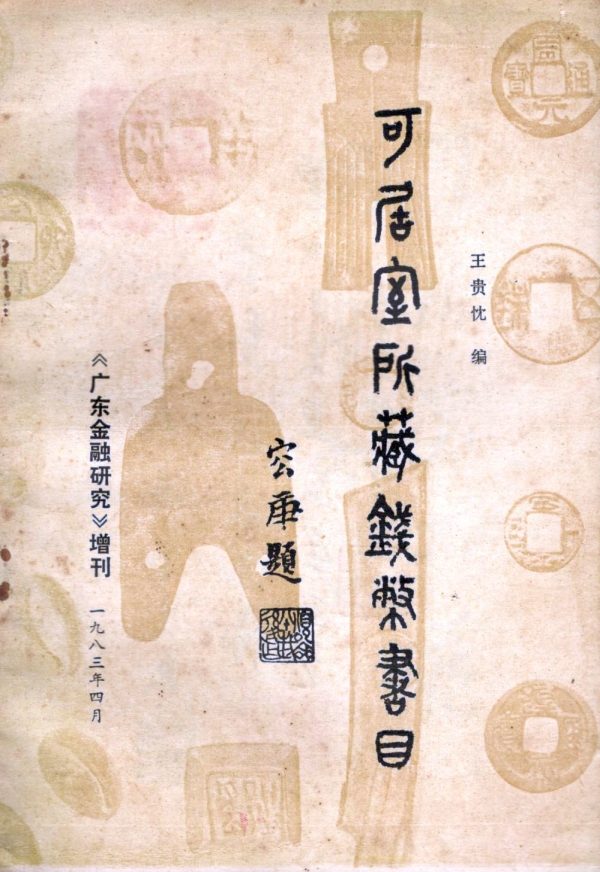 王贵忱 编
可居室所藏錢幣書目
容庚題
《广东金融研究》增刊
一九八三年四月